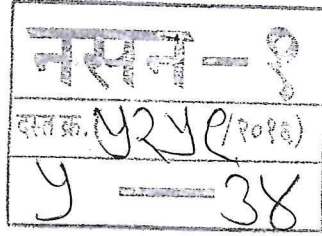 नसन-१
दस्त क्र. ५२५९/२०१६)
५ - ३४